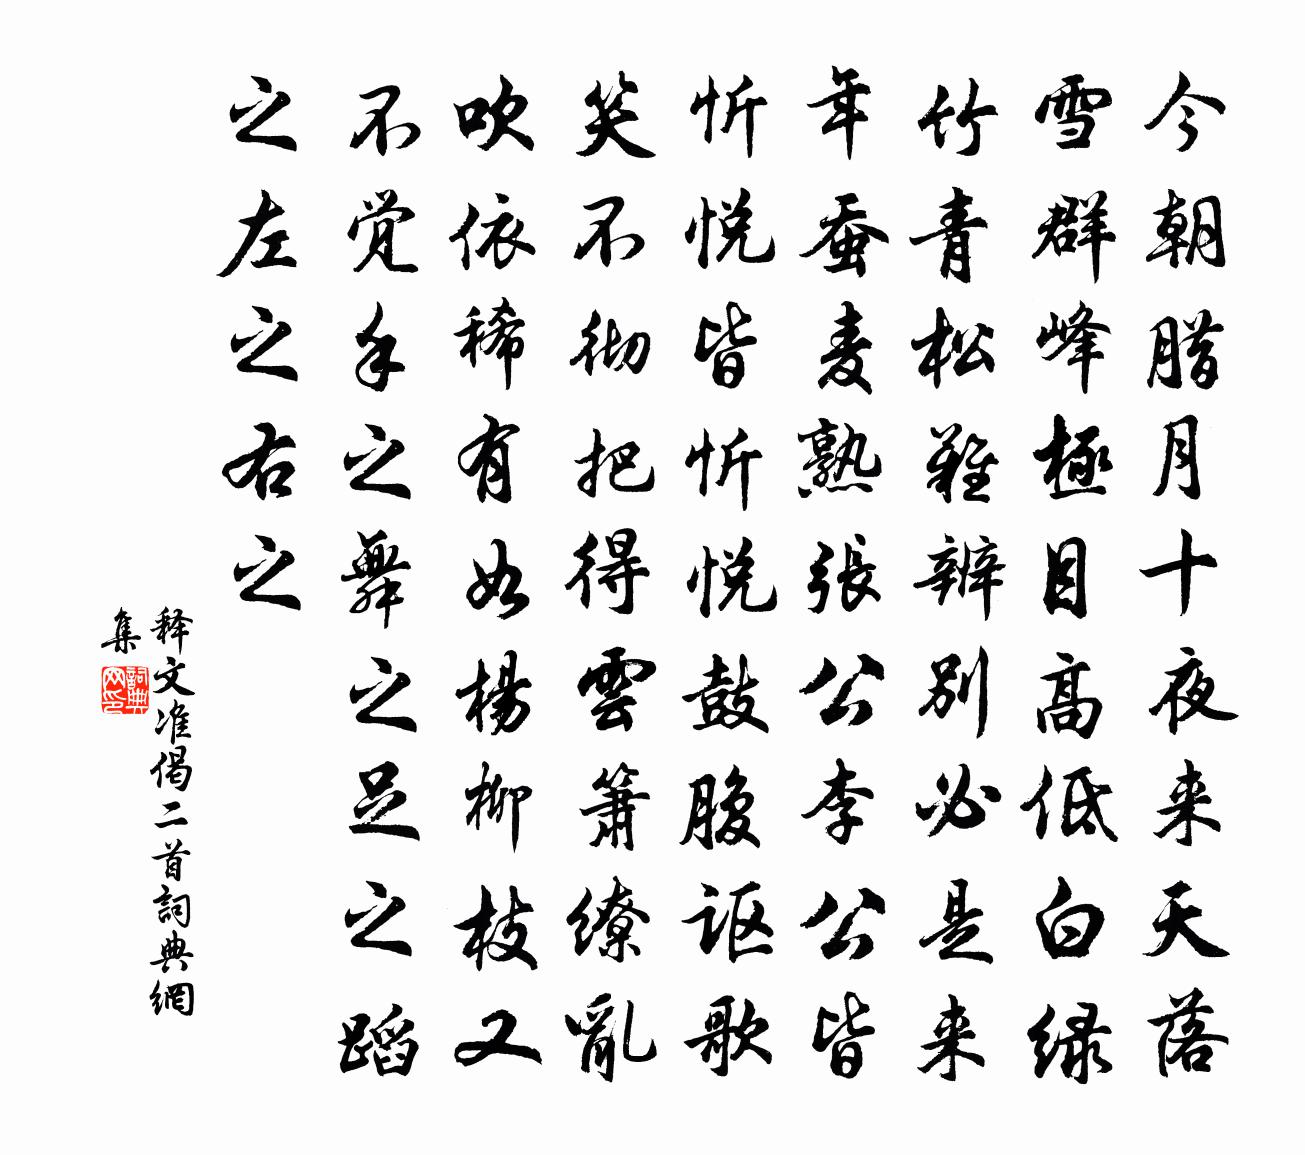 今朝腊月十夜来天落
雪群峰極目高低白绿
竹青松難辨别必是来
年蚕麦熟張公李公皆
忻悦皆忻悦鼓腹讴歌
笑不彻把得雲簫繚亂
吹依稀有如楊柳枝又
不觉手之舞之足之蹈
之左之右之
释文准偈二首詞典網
集
詞典网印